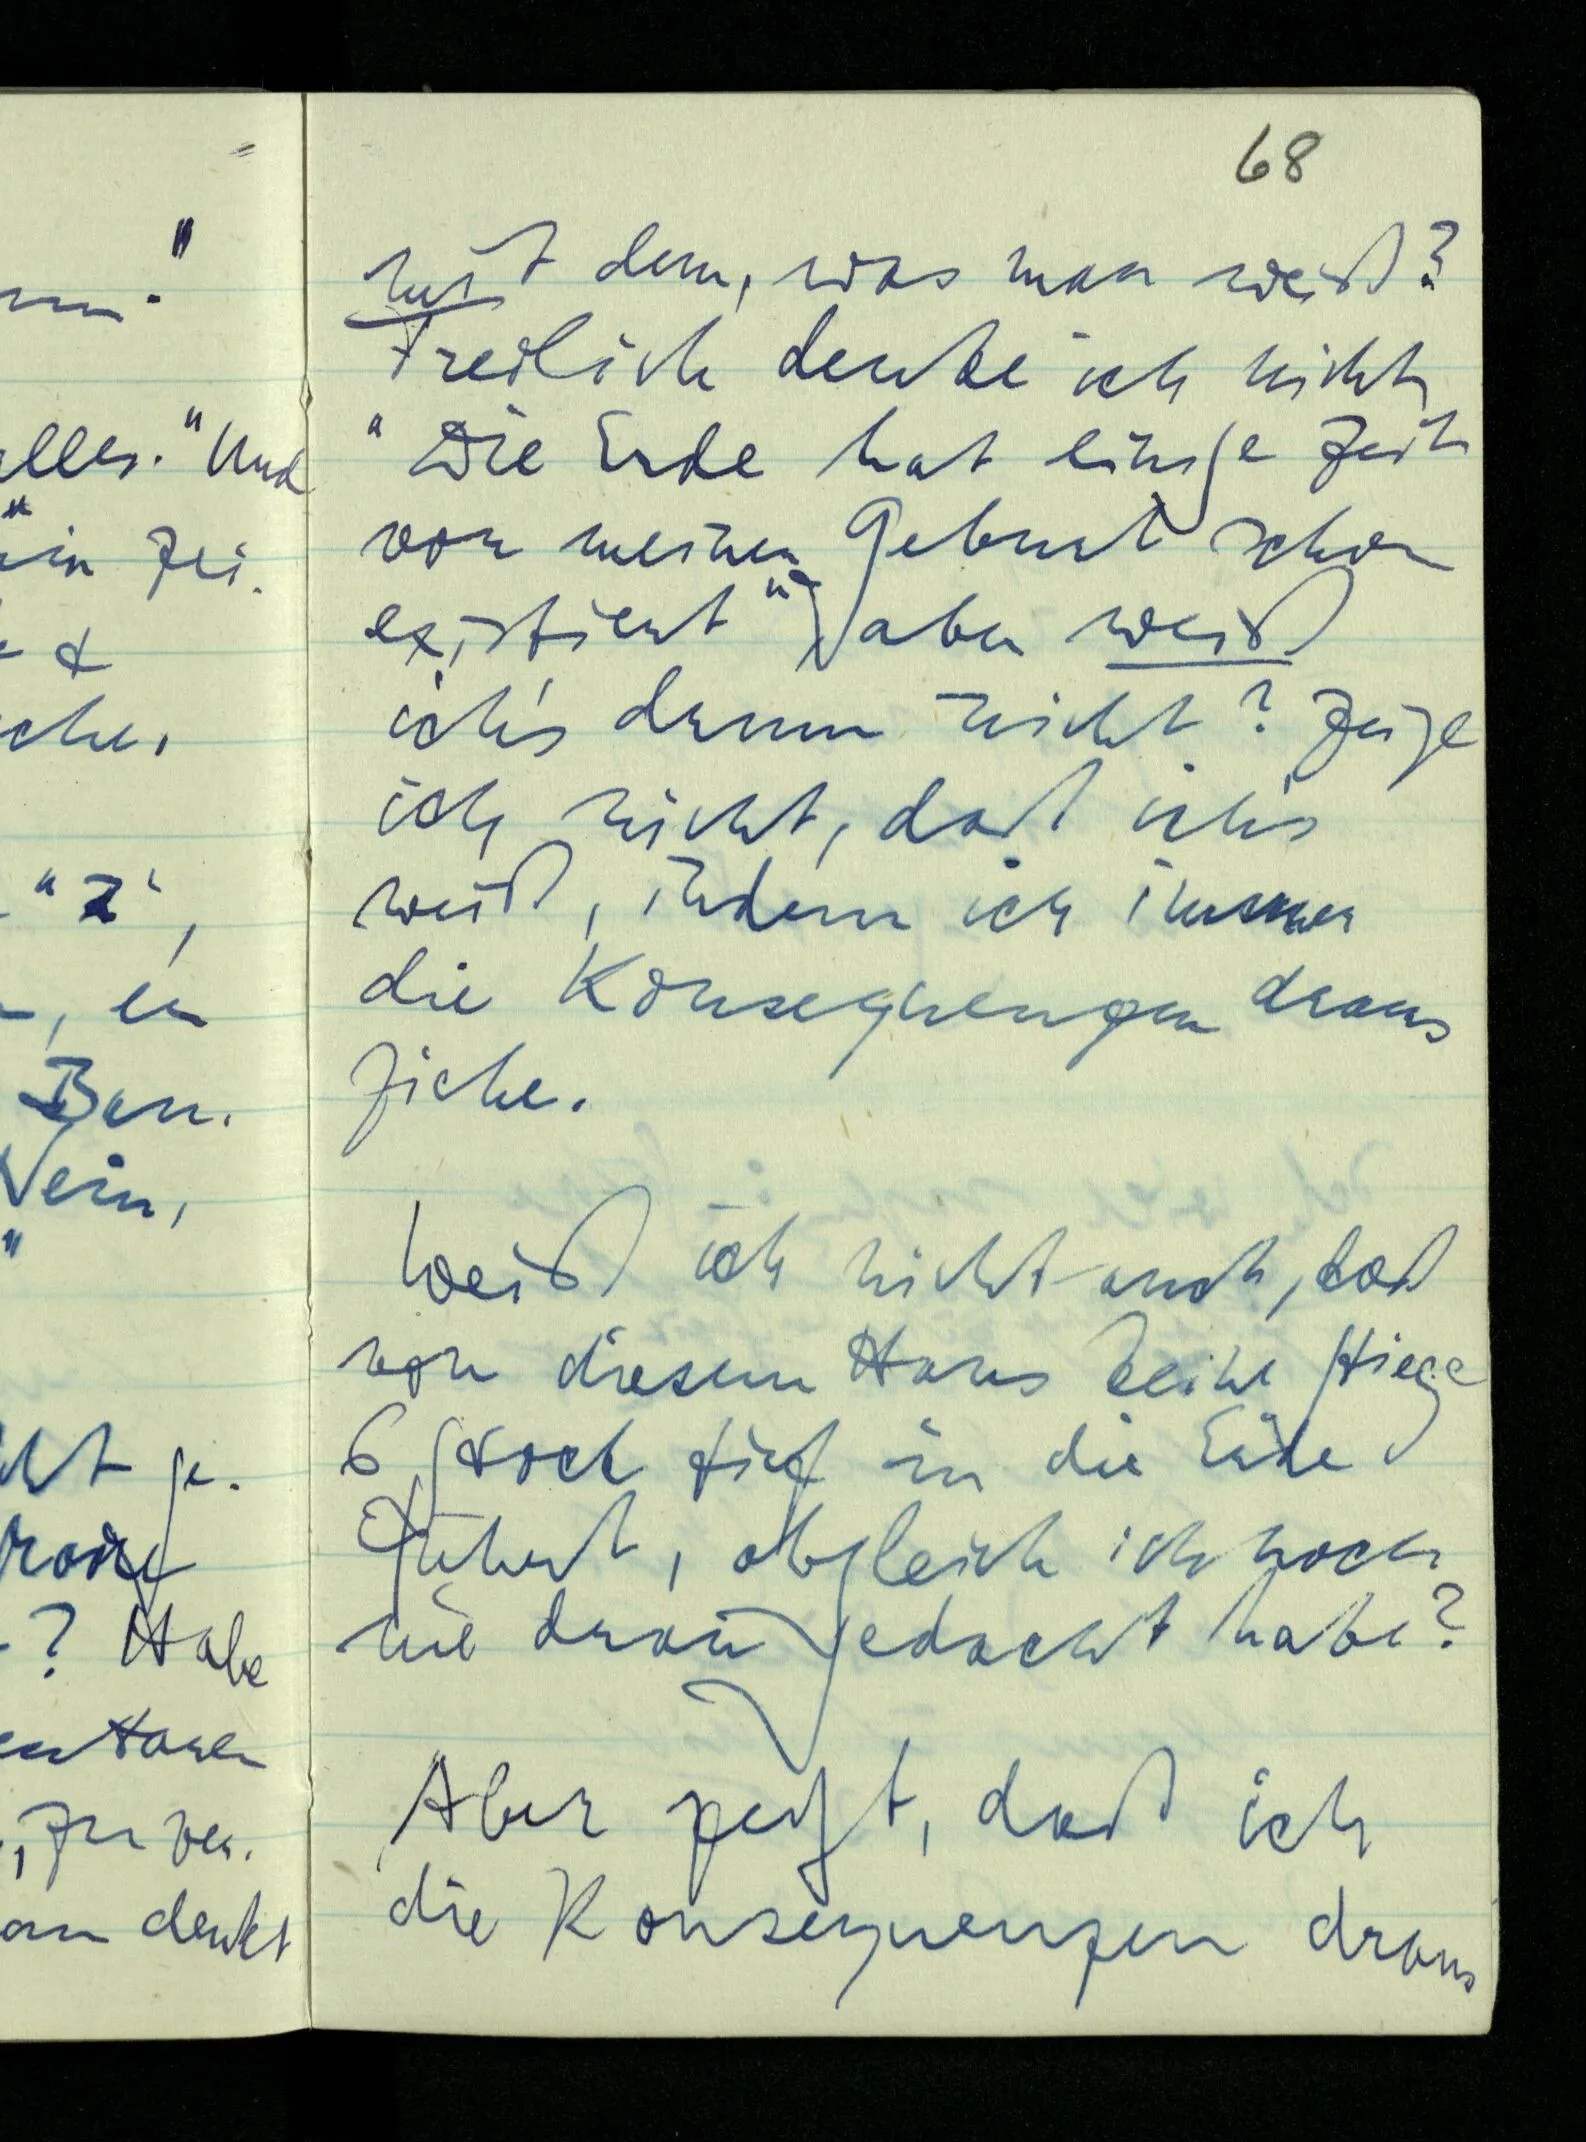 68
mit dem, was man weiß?
Freilich denke ich nicht
"Die Erde hat einige Zeit
vor meiner Geburt schon
existiert", aber weiß
ich's drum nicht? Zeige
ich nicht, daß ich's
weiß, indem ich immer
die Konsequenzen draus
ziehe.
Weiß ich nicht auch, daß
von diesem Haus keine Stiege
6 Stock tief in die Erde
führt, obgleich ich noch
nie dran gedacht habe?
Aber zeigt, daß ich
die Konsequenzen draus
alles." Und
"in Zei.
&
che.
"2",
, er
Ben.
Nein,
"
cht ge.
? Habe
, zu ver.
an denkt